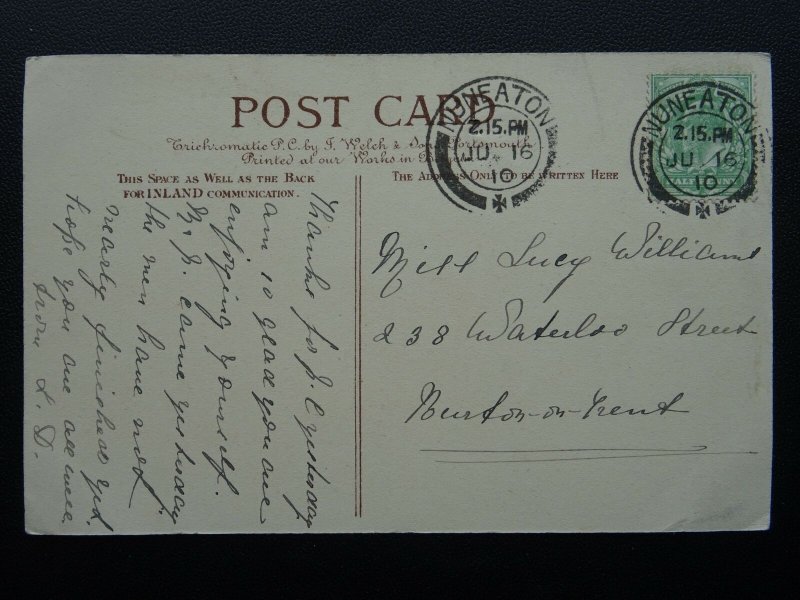 POST CARD
Trichromatic P.C. by F. Welch & Sons Portsmouth
Printed at our Works in
THIS SPACE AS WELL AS THE BACK
FOR INLAND COMMUNICATION.
THE ADDRESS ONLY TO BE WRITTEN HERE
NUNEATON
2.15.PM
JU 16
10
NUNEATON
2.15.PM
JU 16
10
Thanks for P.C yesterday
am so glad you are
enjoying yourself.
came yesterday
the men have not
nearly finished yet.
hope you are all well.
from L. D.
Miss Lucy Williams
238 Waterloo Street
Burton-on-Trent